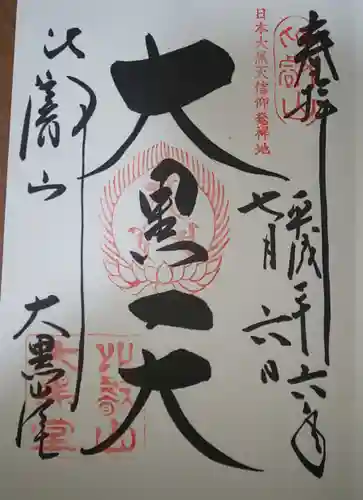 奉拝
日本大黒天信仰發祥地
比叡山
平成二十六年
七月六日
大黒天
比叡山
大黒堂
比叡山
大黒堂